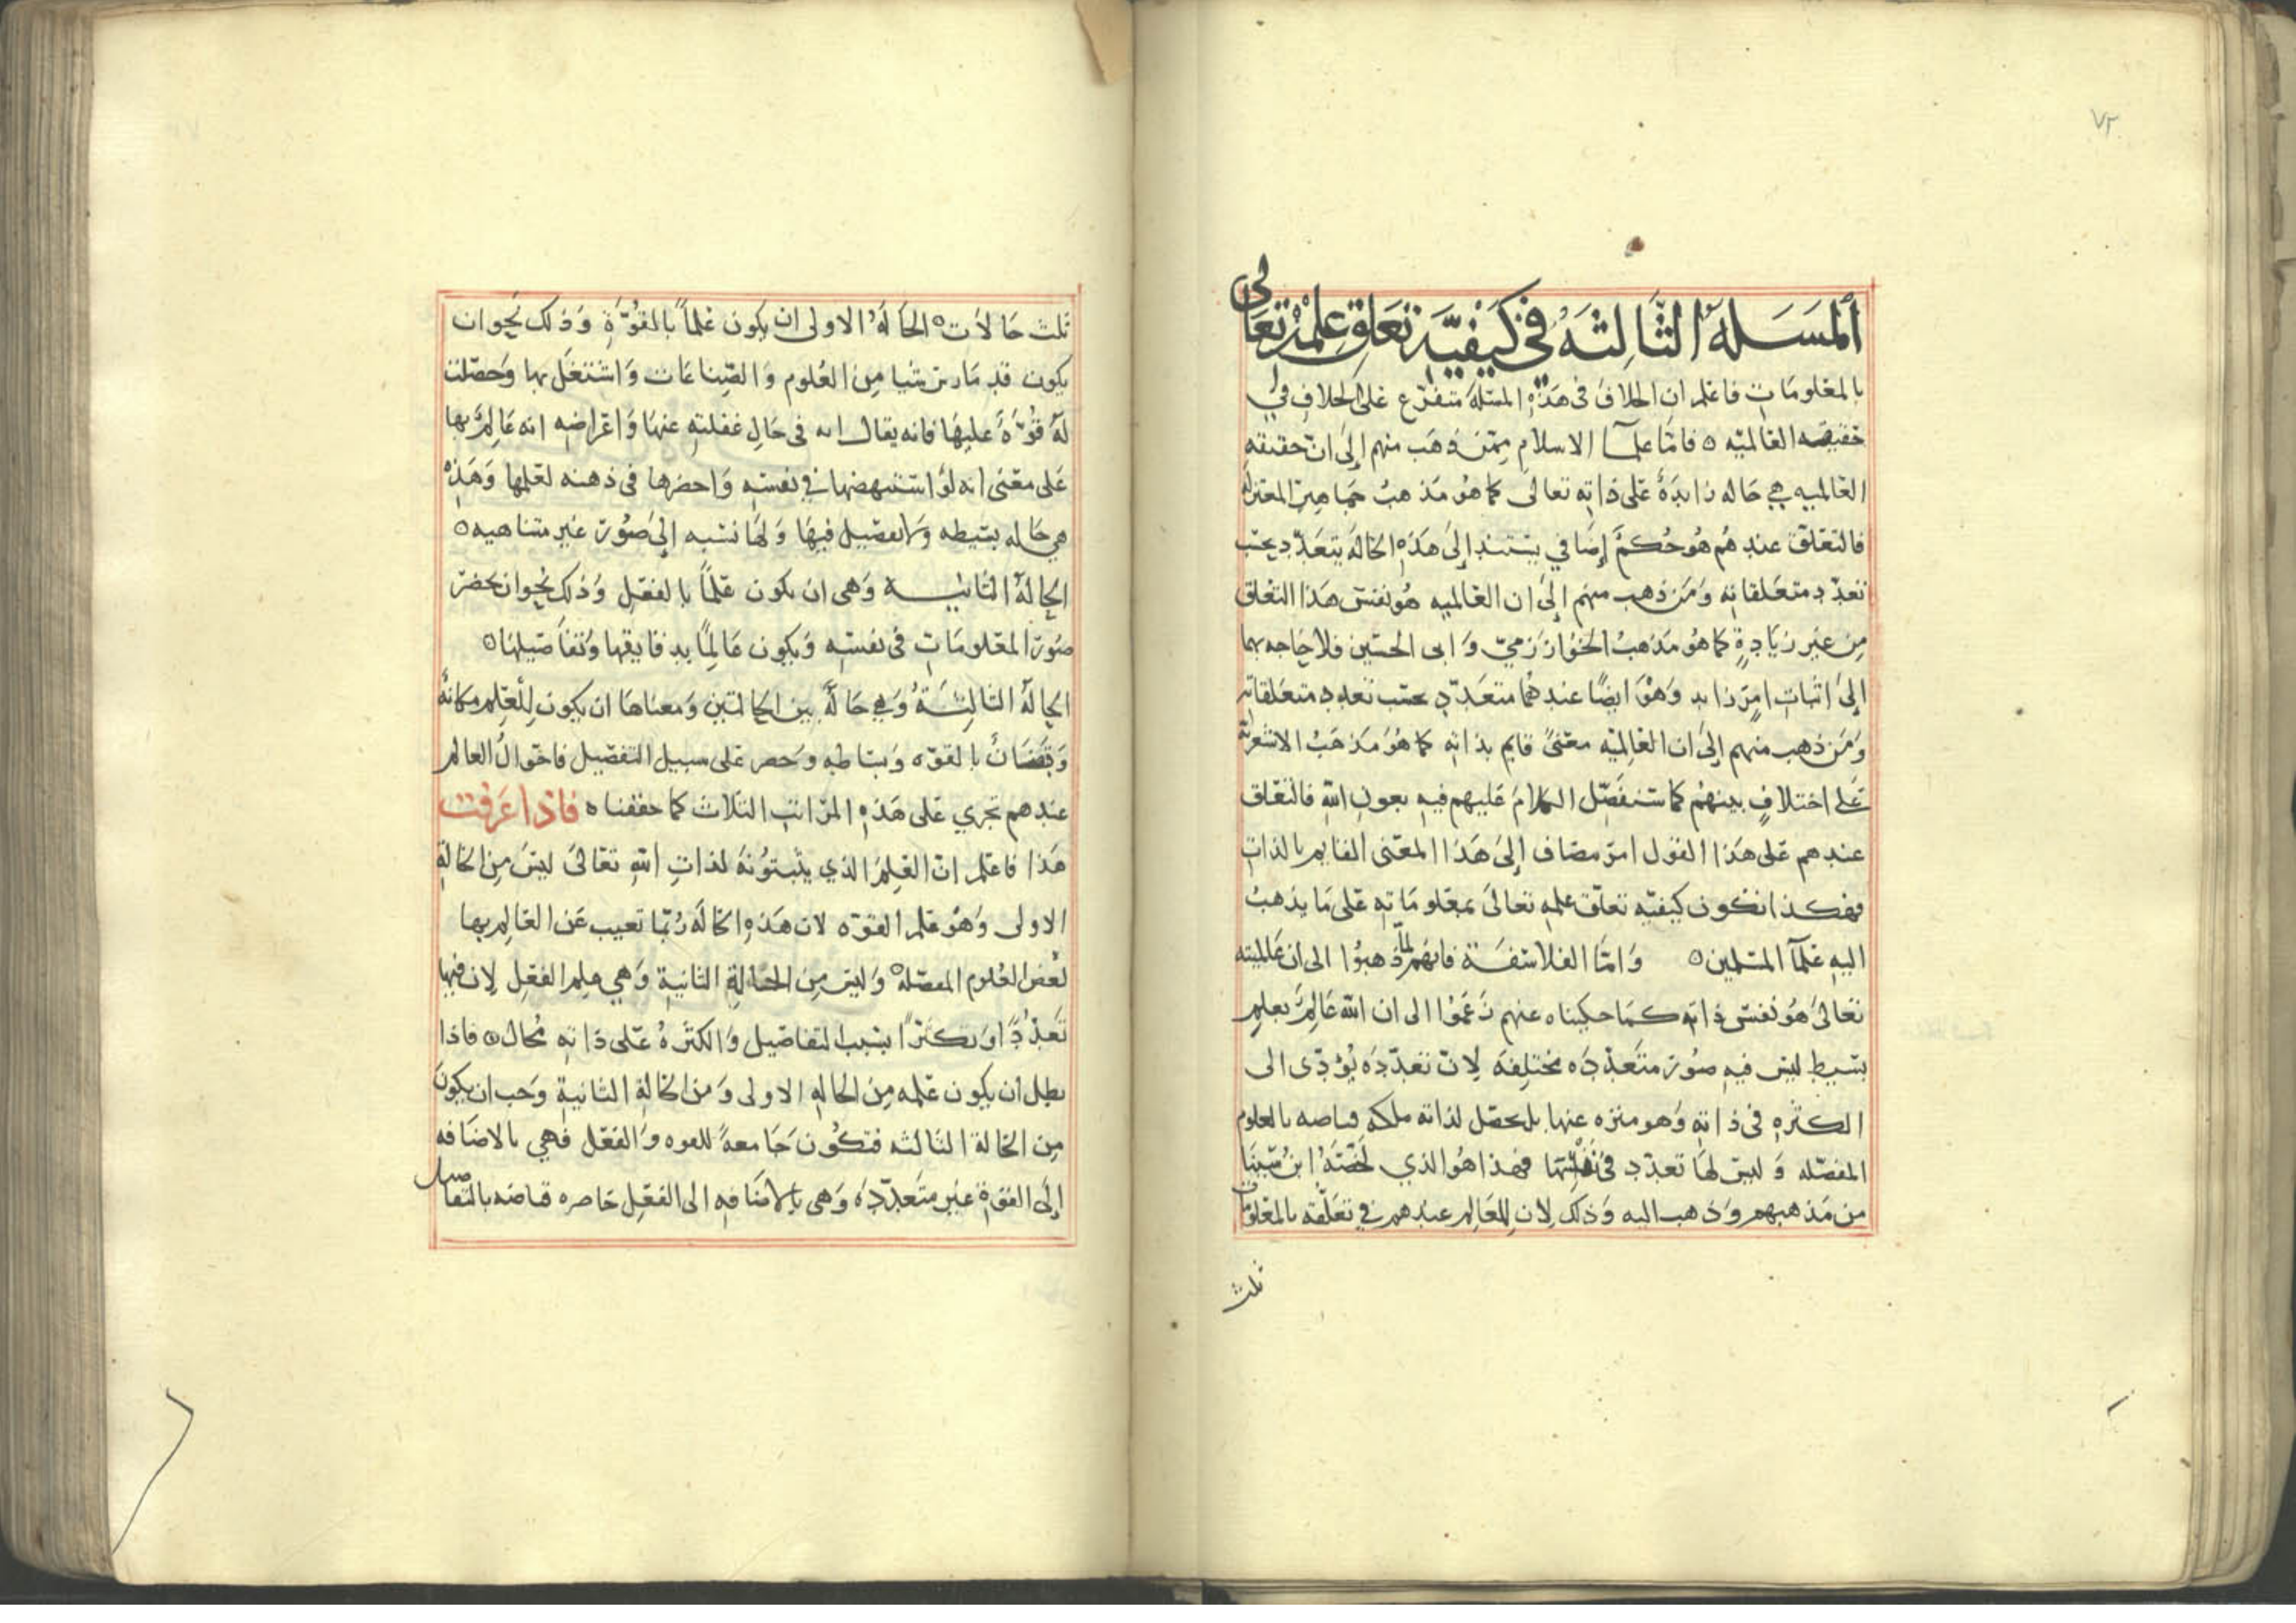 ٧٢
المسله الثالثه في كيفية تعلق علمه تعالى
بالمعلومات فاعلم ان الخلاف فى هذه المسئلة متفرع على الخلاف في
حقيقه العالميه ٥ فاما علمآ الاسلام فمن ذهب منهم إلى ان حقيقه
العالميه هي حاله زايدة على ذاته تعالى كما هو مذهب جماهير المعتزله
فالتعلق عندهم هو حكم إضافي يستند إلى هذه الحالة يتعدد بحسب
تعدد متعلقاته ومن ذهب منهم إلى ان العالميه هو نفس هذا التعلق
من غير زيادة كما هو مذهب الخوارزمي وابى الحسين فلا حاجه بهما
إلى اثبات امر زايد وهو ايضا عندهما متعدد بحسب تعدد متعلقاته
ومن ذهب منهم إلى ان العالميه معنى قايم بذاته كما هو مذهب الاشعرية
على اختلاف بينهم كما سنفصل الكلام عليهم فيه بعون الله فالتعلق
عندهم على هذا القول امر مضاف إلى هذا المعنى القايم بالذات
فهكذا تكون كيفيه تعلق علمه تعالى بمعلوماته على ما يذهب
اليه علمآ المسلمين ٥ واما الفلاسفة فانهم لما ذهبوا الى ان عالميته
تعالى هو نفس ذاته كما حكيناه عنهم زعموا الى ان الله عالم بعلم
بسيط ليس فيه صور متعدده مختلفه لان تعدده يؤدى الى
الكثره فى ذاته وهو منزه عنها بل يحصل لذاته ملكه فياضه بالعلوم
المفصله وليس لها تعدد في نفسها فهذا هو الذي لخصه ابن سينا
من مذهبهم وذهب اليه وذلك لان للعالم عندهم في تعلقه بالمعلومات
ثلث
ثلث حالات ٥ الحاله الاولى ان يكون علما بالقوة وذلك نحو ان
يكون قد مارس شيا من العلوم والصناعات واشتغل بها وحصلت
له قوة عليها فانه يقال انه فى حال غفلته عنها واعراضه انه عالم بها
على معنى انه لو استنهضها في نفسه واحضرها فى ذهنه لعلمها وهذه
هي حاله بسيطه ولا تفصيل فيها ولها نسبه إلى صور غير متناهيه ٥
الحالة الثانيه وهى ان يكون علما بالفعل وذلك نحو ان تحضر
صور المعلومات فى نفسه ويكون عالما بدقايقها وتفاصيلها ٥
الحالة الثالثة وهي حالة بين الحالتين ومعناها ان يكون للعلم مكانة
بالقوه وبساطه وحصر على سبيل التفصيل فاحوال العالم
عندهم تجري على هذه المراتب الثلاث كما حققناه فاذا عرفت
هذا فاعلم ان العلم الذي يثبتونه لذات الله تعالى ليس من الحالة
الاولى وهو علم القوه لان هذه الحالة ربما تعيب عن العالم بها
بعض العلوم المفصله وليس من الحالة الثانية وهي علم الفعل لان فيها
تعددا وتكثرا بسبب التفاصيل والكثرة على ذاته محال ٥ فاذا
بطل ان يكون علمه من الحاله الاولى ومن الحالة الثانية وجب ان يكون
من الحالة الثالثه فتكون جامعة للقوه والفعل فهي بالاضافه
إلى القوة غير متعدده وهى بالاضافه الى الفعل حاصره فياضه بالتفاصيل